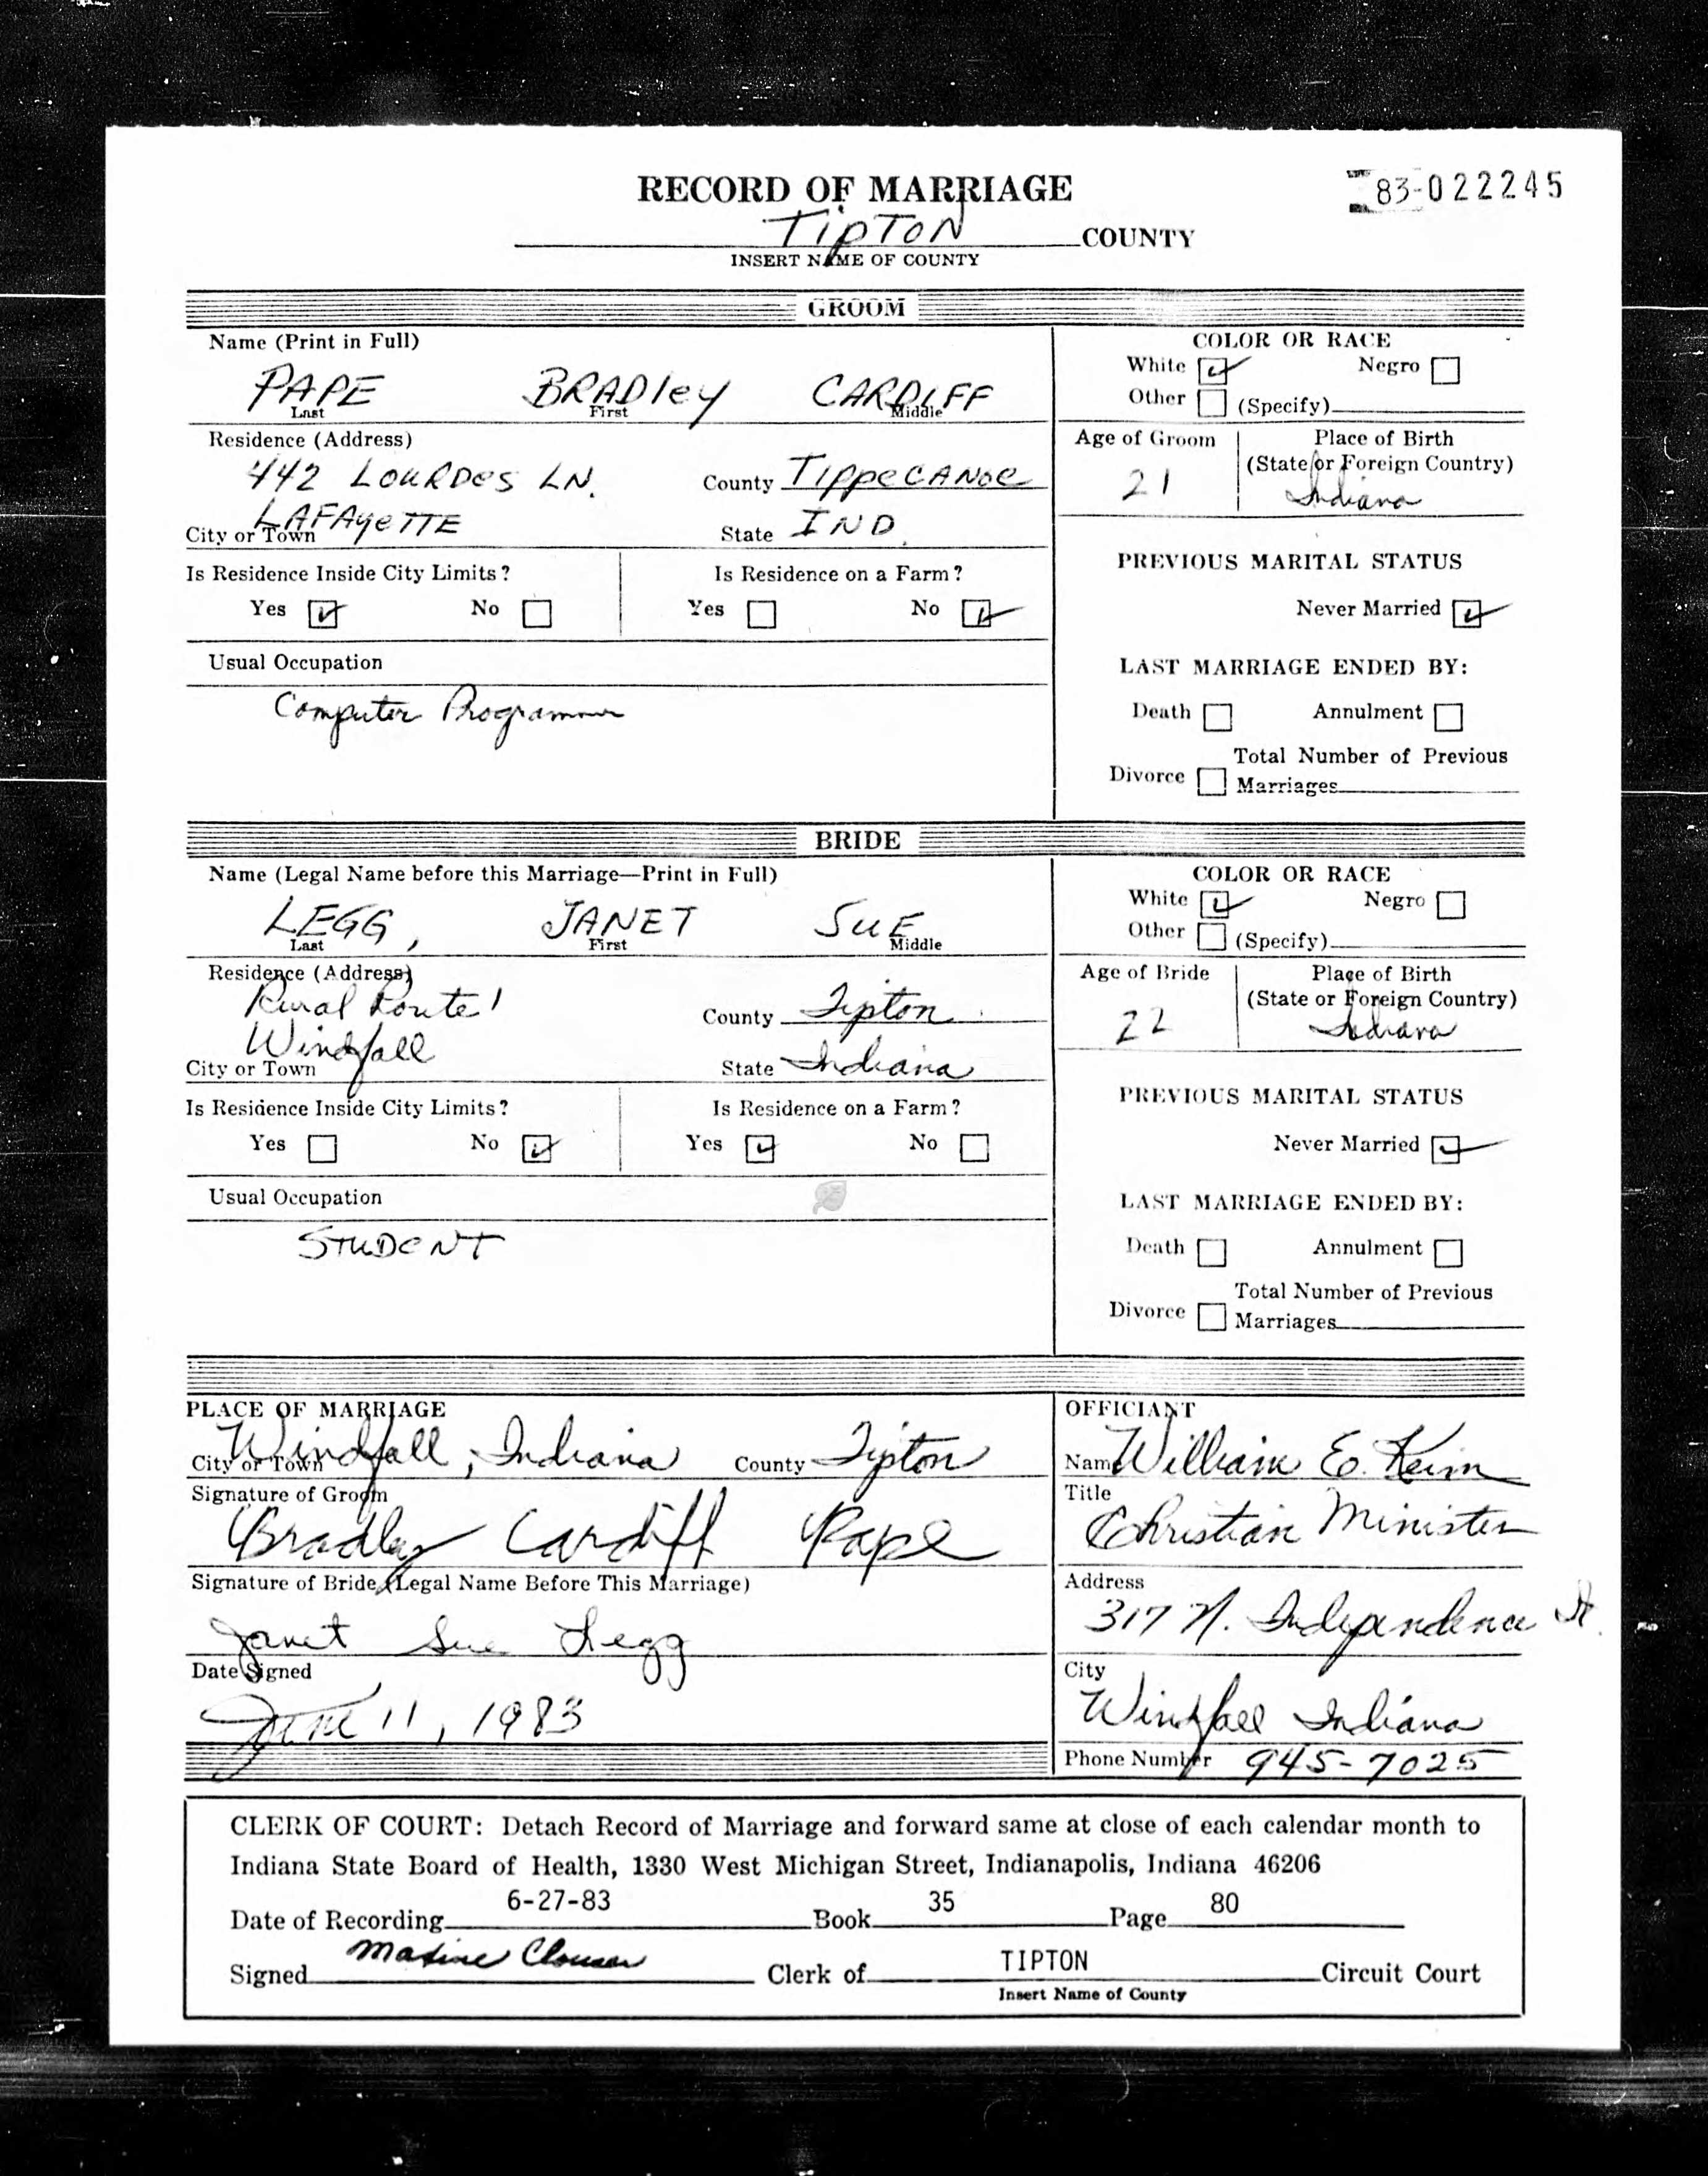 RECORD OF MARRIAGE
83-022245
TIPTON COUNTY
INSERT NAME OF COUNTY
GROOM
Name (Print in Full)
PAPE BRADley CARDIFF
Last First Middle
COLOR OR RACE
White Negro
Other (Specify)
Residence (Address)
442 LOURDES LN. County TIPPECANOE
LAFAYETTE
City or Town State IND.
Age of Groom
21
Place of Birth
(State or Foreign Country)
Indiana
Is Residence Inside City Limits?
Yes No
Is Residence on a Farm?
Yes No
PREVIOUS MARITAL STATUS
Never Married
Usual Occupation
Computer Programmer
LAST MARRIAGE ENDED BY:
Death Annulment
Divorce Total Number of Previous
Marriages
BRIDE
Name (Legal Name before this Marriage—Print in Full)
LEGG, JANET SUE
Last First Middle
COLOR OR RACE
White Negro
Other (Specify)
Residence (Address)
Rural Route 1 County Tipton
Windfall
City or Town State Indiana
Age of Bride
22
Place of Birth
(State or Foreign Country)
Indiana
Is Residence Inside City Limits?
Yes No
Is Residence on a Farm?
Yes No
PREVIOUS MARITAL STATUS
Never Married
Usual Occupation
STUDENT
LAST MARRIAGE ENDED BY:
Death Annulment
Divorce Total Number of Previous
Marriages
PLACE OF MARRIAGE
City or Town Windfall, Indiana County Tipton
Signature of Groom
Bradley Cardiff Pape
Signature of Bride (Legal Name Before This Marriage)
Janet Sue Legg
Date Signed
June 11, 1983
OFFICIANT
Name William E. Keim
Title
Christian Minister
Address
317 N. Independence St.
City
Windfall Indiana
Phone Number 945-7025
CLERK OF COURT: Detach Record of Marriage and forward same at close of each calendar month to
Indiana State Board of Health, 1330 West Michigan Street, Indianapolis, Indiana 46206
Date of Recording 6-27-83 Book 35 Page 80
Signed Maxine Clouser Clerk of TIPTON Circuit Court
Insert Name of County